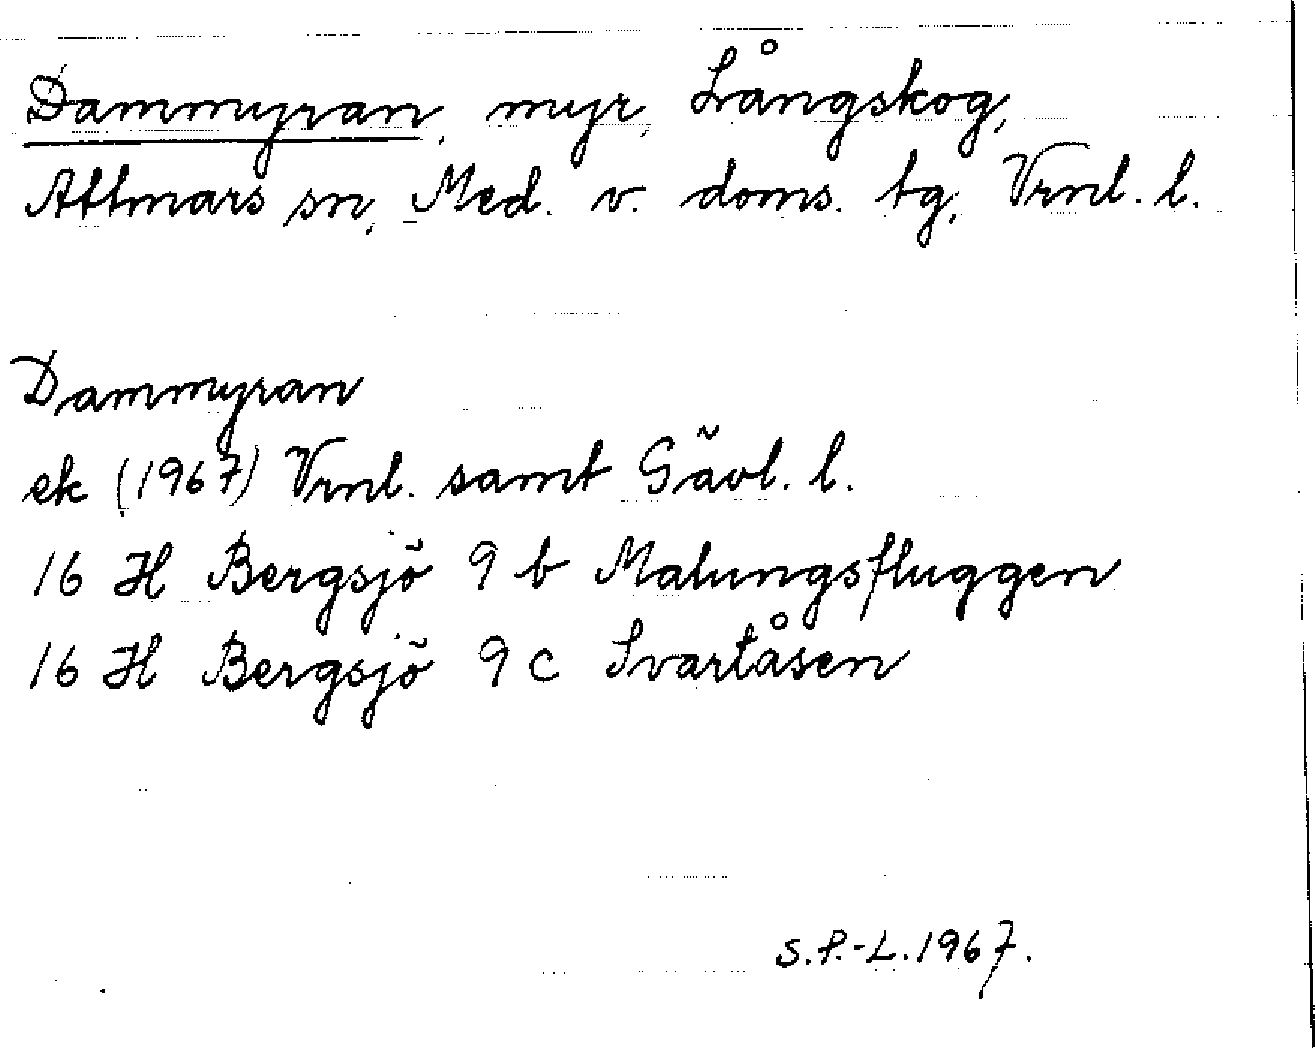 Dammyran, myr, Långskog,
Attmars sn, Med. v. doms. tg, Vrnl. l.
Dammyran
ek (1967) Vrnl. samt Gävl. l.
16 H Bergsjö 9 b Malungsfluggen
16 H Bergsjö 9 c Svartåsen
S.P.-L. 1967.